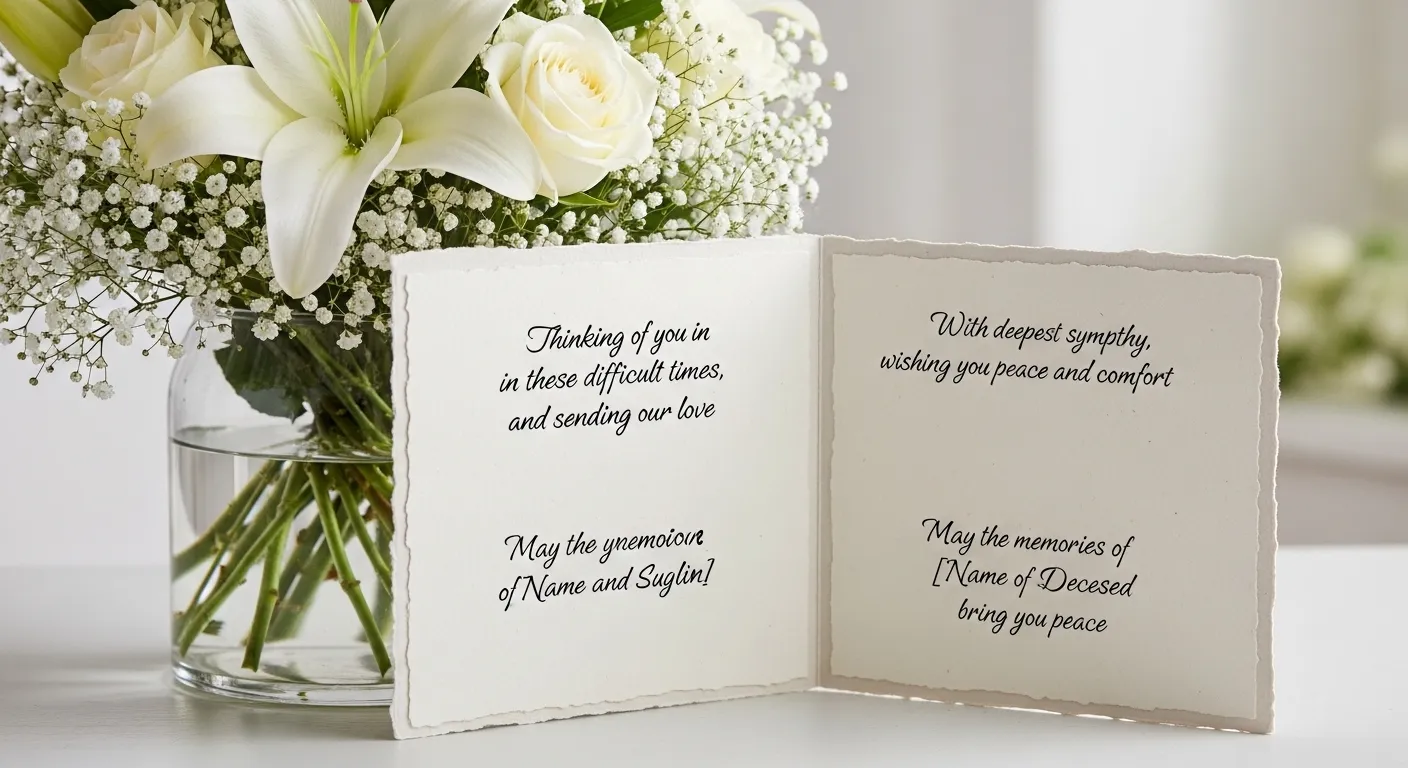 Thinking of you in
in these difficult times,
and sending our love
May the ynemoiour
of Name and Suglin]
With deepest sympthy,
wishing you peace and comfort
May the memories of
[Name of Decesed
bring you peace